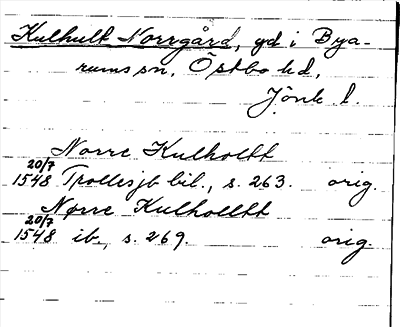 Kulhult Norrgård, gd i Bya-
rums sn, Östbo hd,
Jönk l.
Norre Kulholtt
20/7
1548 Trollesjb bil., s. 263. orig.
Nørre Kulholltt
20/7
1548 ib., s. 269. orig.